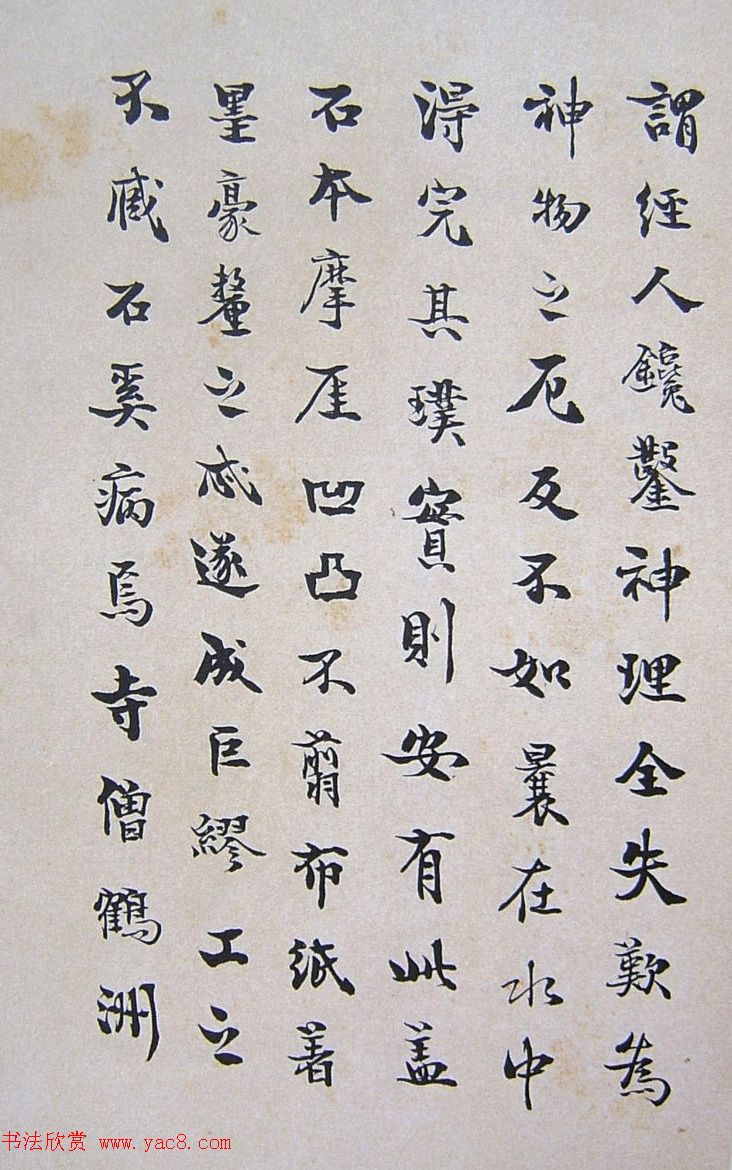 謂經人鑱鑿神理全失歎為
神物之厄反不如曩在水中
得完其璞實則安有此蓋
石本摩厓凹凸不翦布紙著
墨豪釐之忒遂成巨繆工之
不臧石奚病焉寺僧鶴洲
书法欣赏 www.yac8.com